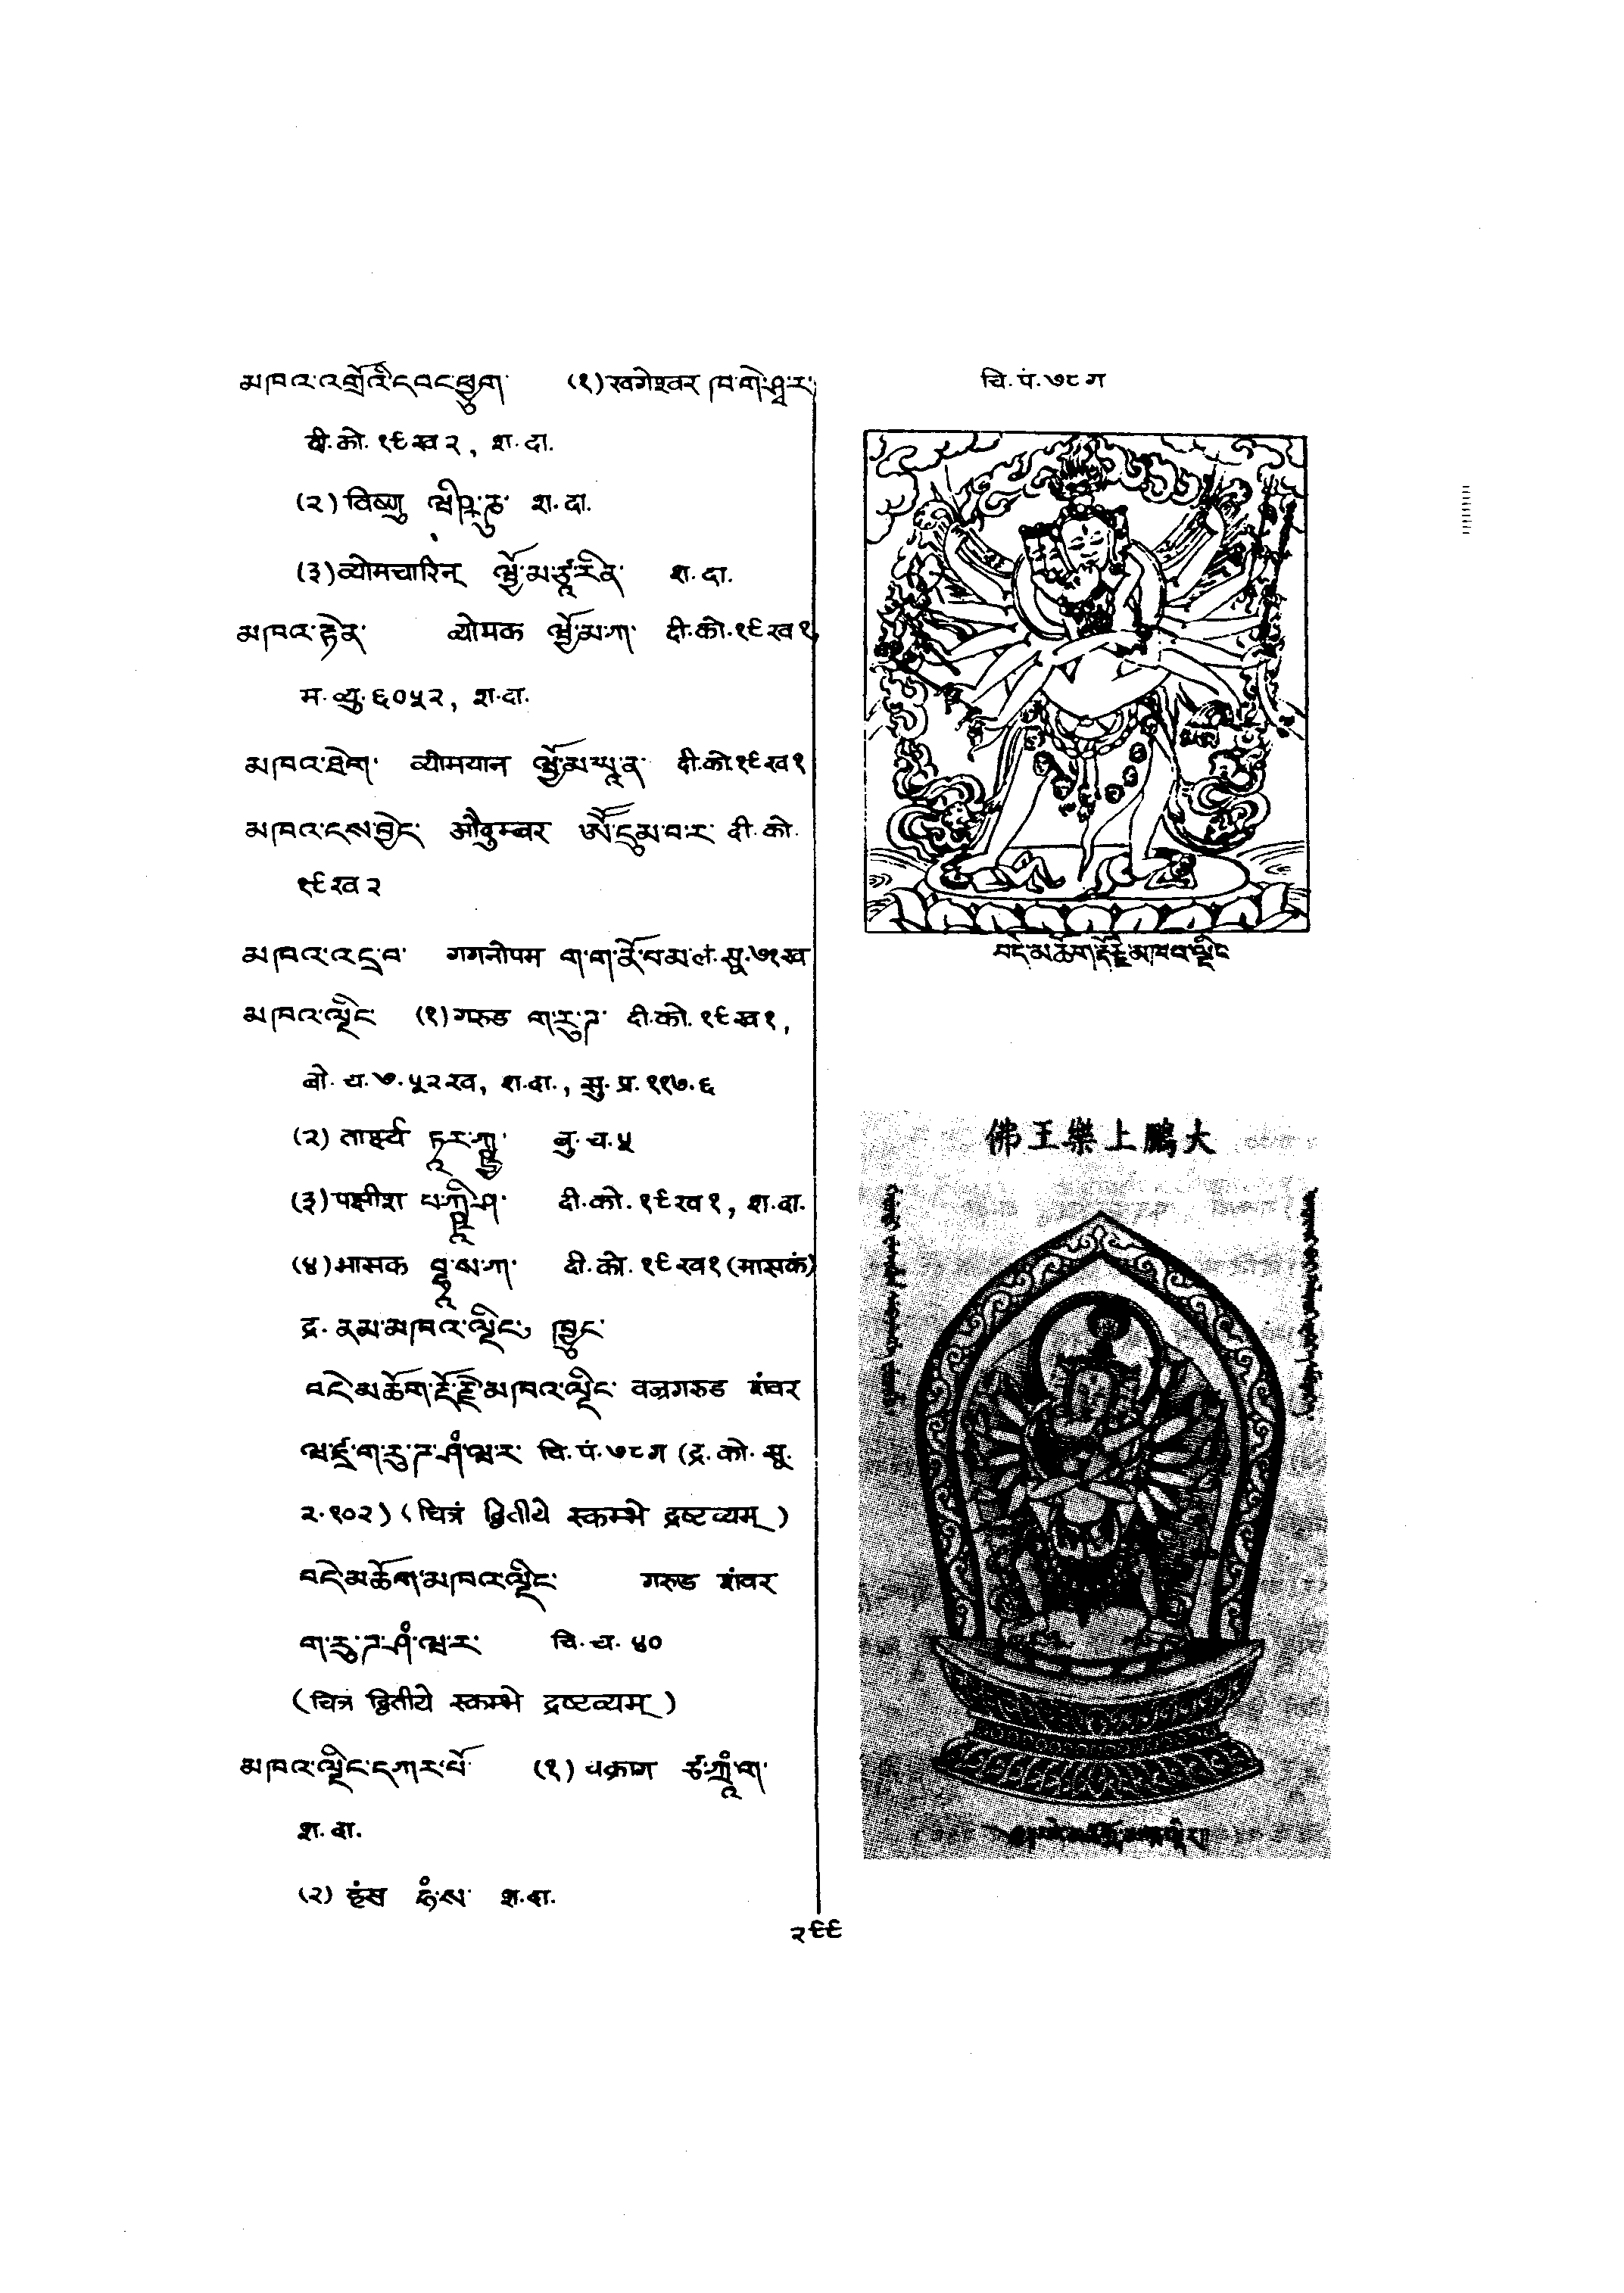 མཁའ་འགྲོའི་དབང་ཕྱུག་ (१) खगेश्वर ཁ་གེ་ཤྭ་ར་
दी.को. १९ ख २, श.दा.
(२) विष्णु ཝི་ཥྞུ་ श.दा.
(३) व्योमचारिन् ཝྱོ་མ་ཙཱ་རིན་ श.दा.
མཁའ་རྟེན་ व्योमक ཝྱོ་མ་ཀ་ दी.को.१९ ख १,
म.व्यु.६०५२, श.दा.
མཁའ་ཐེག་ व्योमयान ཝྱོ་མ་ཡཱ་ན་ दी.को.१९ ख १
མཁའ་དས་བྱེང་ औदुम्बर ཨོ་དུམ་བ་ར་ दी.को.
१९ ख २
མཁའ་འདྲ་བ་ गगनोपम ག་ག་ནོ་པ་མ་ लं.सू.७१ख
མཁའ་ལྡིང་ (१) गरुड ག་རུ་ཌ་ दी.को. १९ ख १,
बो.च.७.५२ख, श.दा., सु.प्र.११७.६
(२) तार्क्ष्य ཏཱར་ཀྵྱ་ बु.च.५
(३) पक्षीश པ་ཀྵཱི་ཤ་ दी.को.१९ ख १, श.दा.
(४) भासक བྷཱ་ས་ཀ་ दी.को.१९ ख १ (भासकं)
द्र. ནམ་མཁའ་ལྡིང་, ཁྱུང་
བདེ་མཆོག་རྡོ་རྗེ་མཁའ་ལྡིང་ वज्रगरुड शंवर
ཝ་ཛྲ་ག་རུ་ཌ་ཤཾ་ཝ་ར་ चि.पं.७८ग (द्र.को.सू.
२.१०२) (चित्रं द्वितीये स्कम्भे द्रष्टव्यम्)
བདེ་མཆོག་མཁའ་ལྡིང་ गरुड शंवर
ག་རུ་ཌ་ཤཾ་ཝ་ར་ चि.च.४०
(चित्रं द्वितीये स्कम्भे द्रष्टव्यम्)
མཁའ་ལྡིང་དཀར་པོ་ (१) चक्राग ཙ་ཀྲཱཾ་ག་
श.दा.
(२) हंस ཧཾ་ས་ श.दा.
चि.पं.७८ग
བདེ་མཆོག་རྡོ་རྗེ་མཁའ་ལྡིང
佛王樂上鵬大
२९९